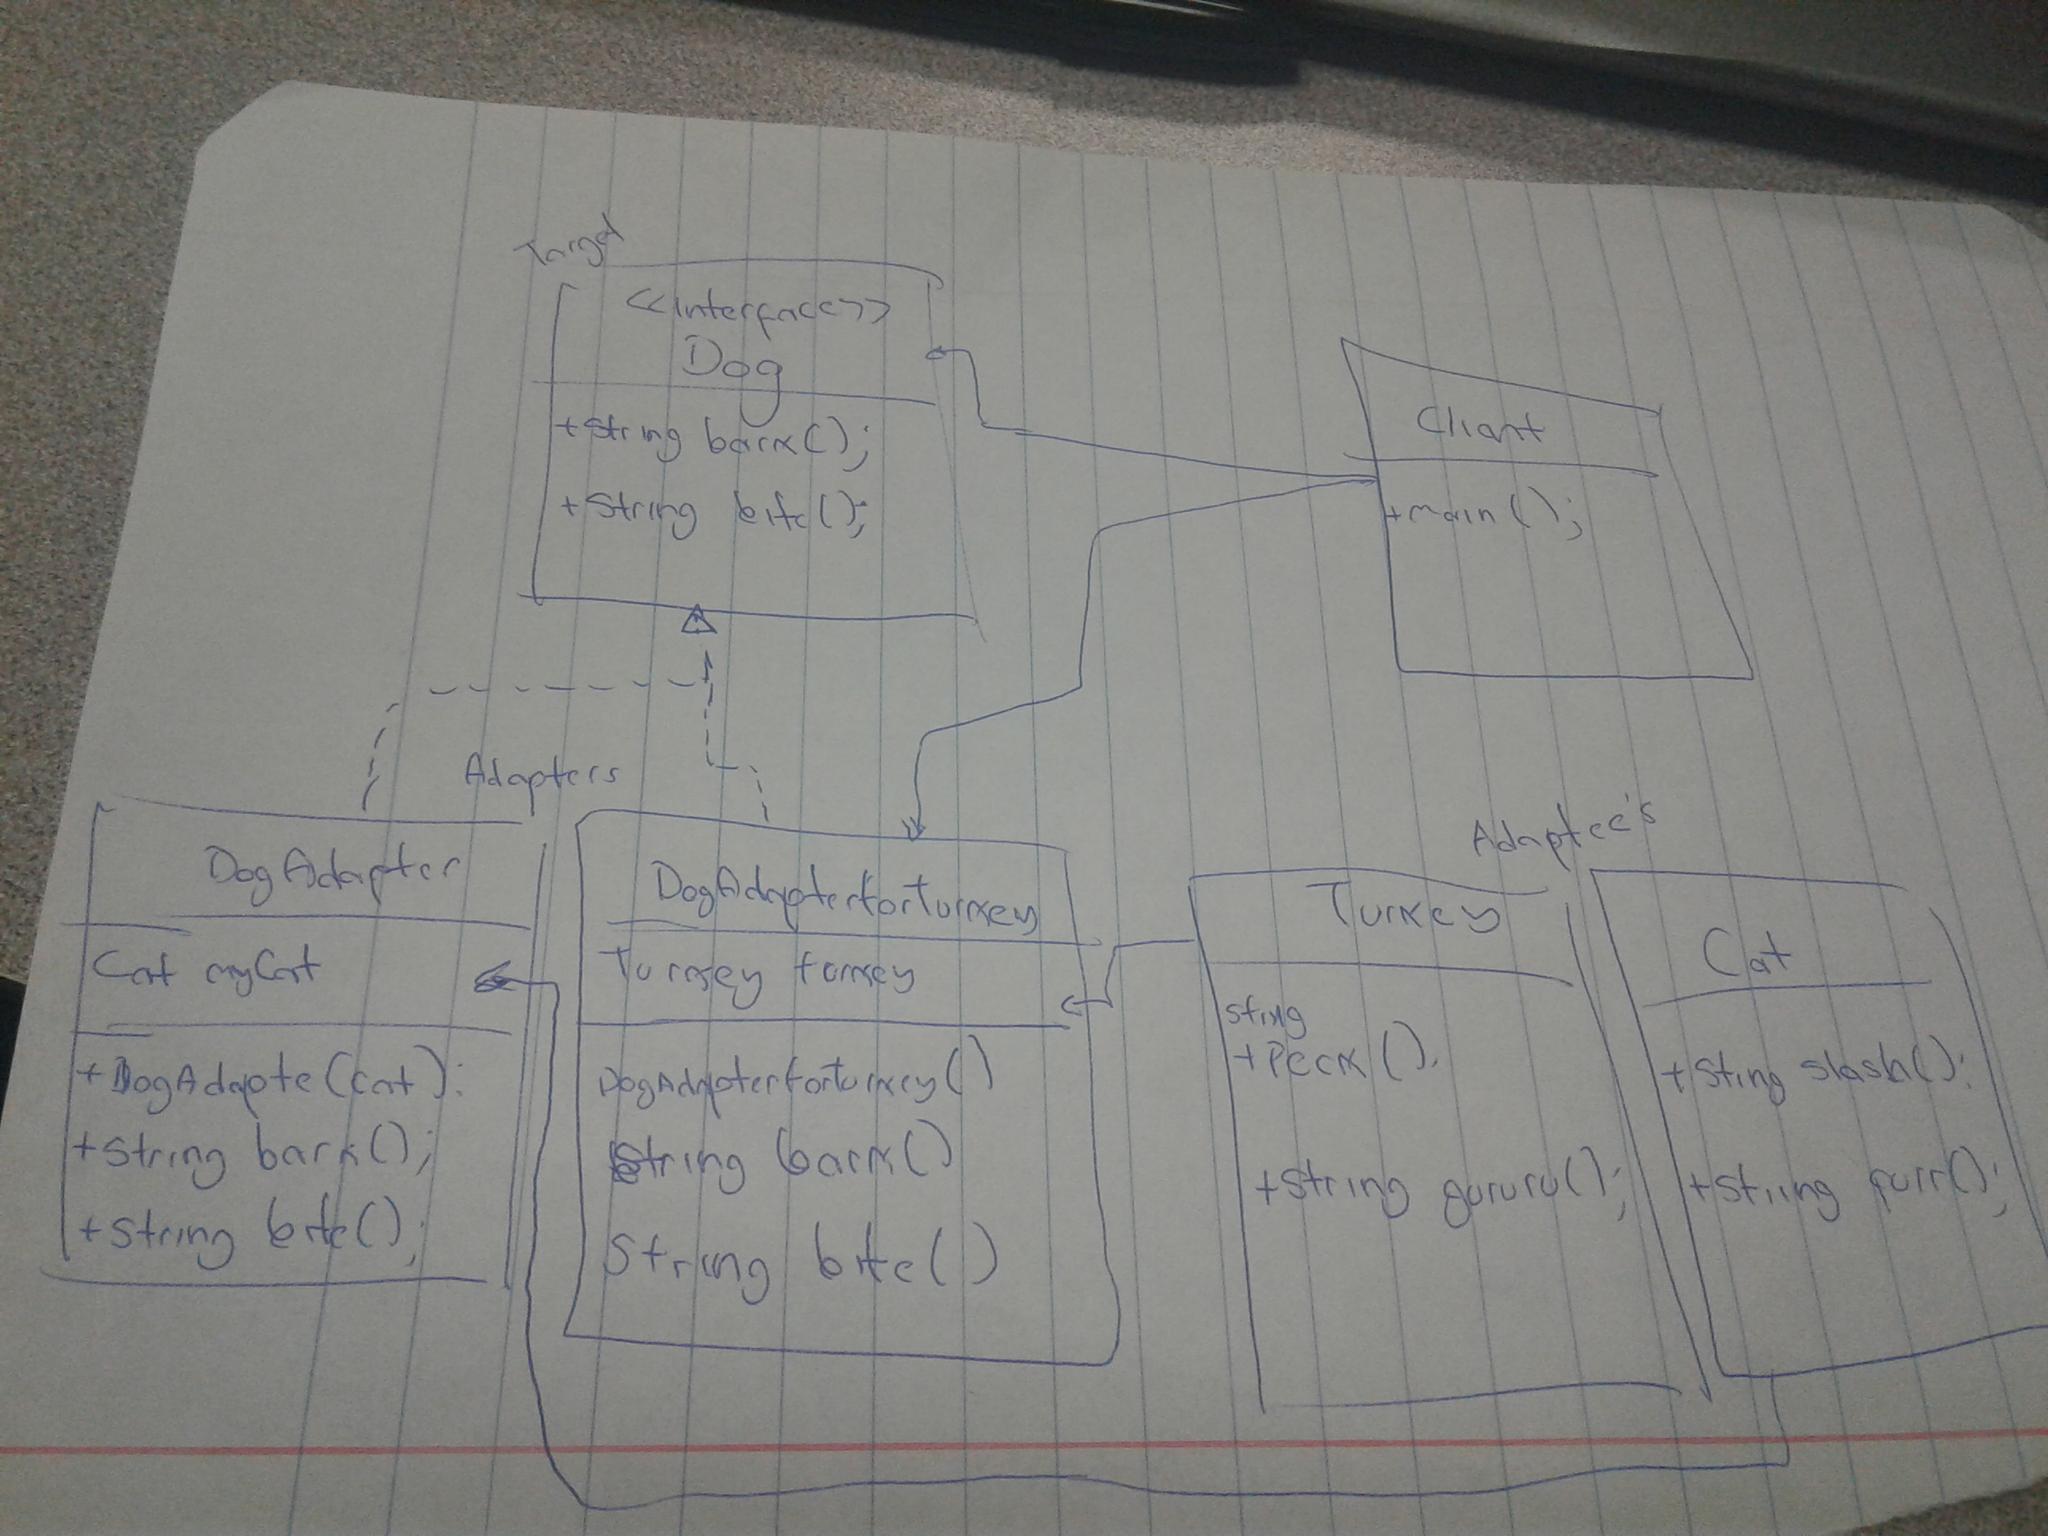 Target
<<interface>>
Dog
+String bark();
+String bite();
Client
+main();
Adapters
DogAdapter
Cat myCat
+DogAdapte(cat):
+String bark();
+String bite();
DogAdapterforTurkey
Turkey turkey
DogAdapterforturkey()
String bark()
String bite()
Adaptee's
Turkey
sting
+Peck().
+String gururu();
Cat
+Sting slash():
+String purr();